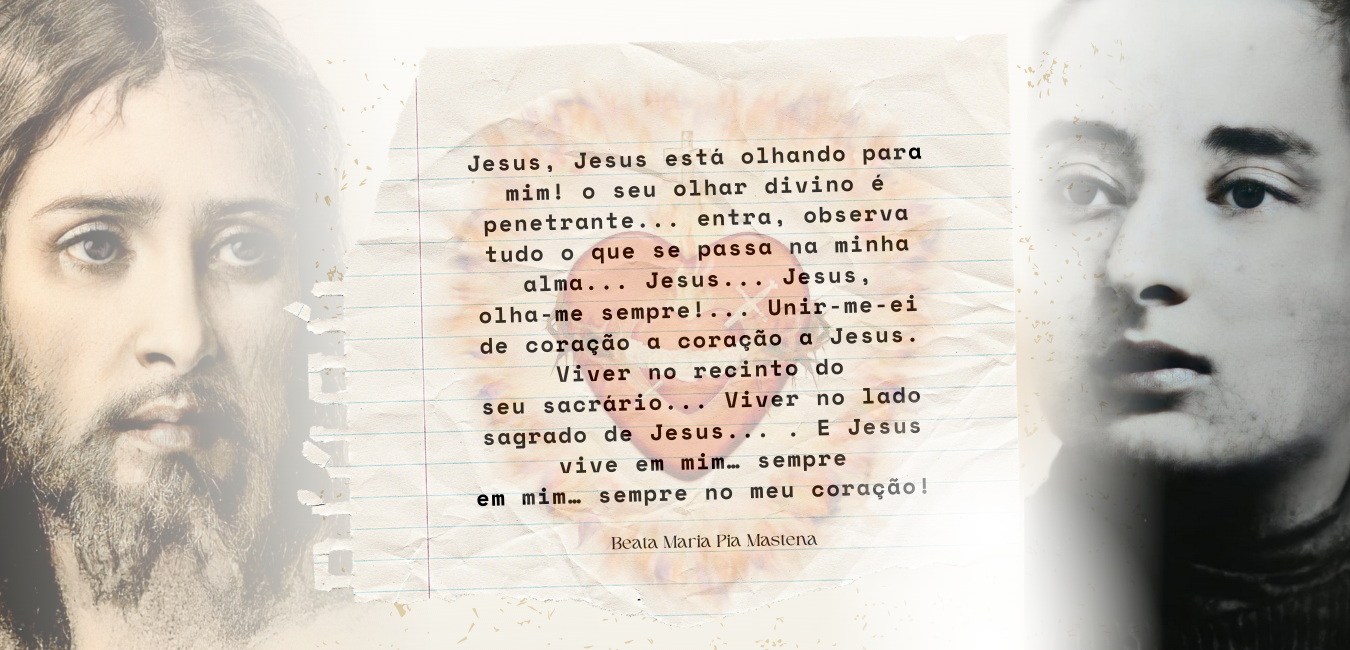 Jesus, Jesus está olhando para
mim! o seu olhar divino é
penetrante... entra, observa
tudo o que se passa na minha
alma... Jesus... Jesus,
olha-me sempre!... Unir-me-ei
de coração a coração a Jesus.
Viver no recinto do
seu sacrário... Viver no lado
sagrado de Jesus... . E Jesus
vive em mim… sempre
em mim… sempre no meu coração!
Beata Maria Pia Mastena